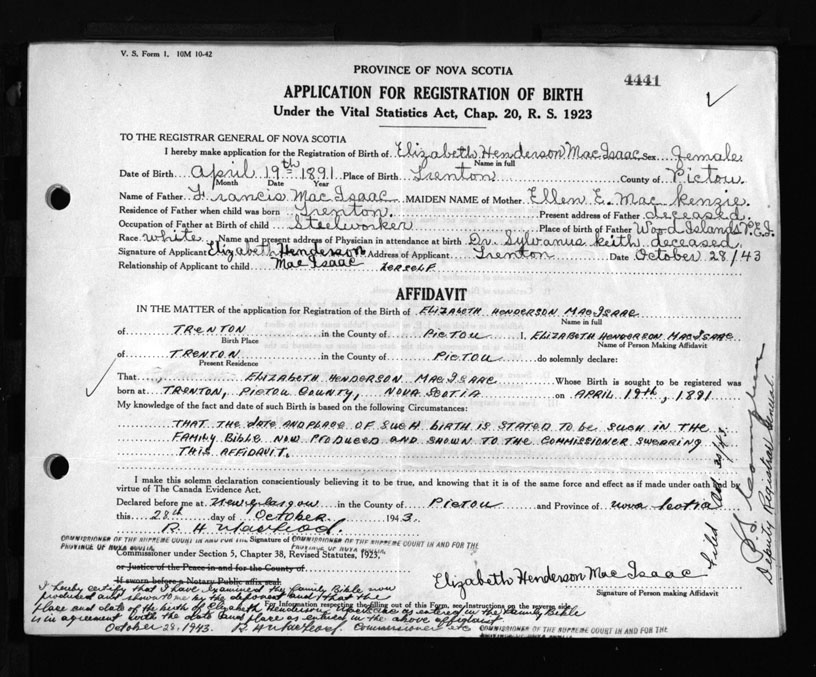 V. S. Form 1. 10M 10-42
PROVINCE OF NOVA SCOTIA
4441
APPLICATION FOR REGISTRATION OF BIRTH
Under the Vital Statistics Act, Chap. 20, R. S. 1923
TO THE REGISTRAR GENERAL OF NOVA SCOTIA
I hereby make application for the Registration of Birth of Elizabeth Henderson MacIsaac Sex female
Name in full
Date of Birth April 19th 1891 Place of Birth Trenton County of Pictou
Month Date Year
Name of Father Francis MacIsaac MAIDEN NAME of Mother Ellen E. MacKenzie
Residence of Father when child was born Trenton Present address of Father deceased.
Occupation of Father at Birth of child Steelworker Place of Birth of Father Wood Islands P.E.I.
Race white Name and present address of Physician in attendance at birth Dr. Sylvanus Keith deceased
Signature of Applicant Elizabeth Henderson MacIsaac Address of Applicant Trenton Date October 28/43
Relationship of Applicant to child herself
AFFIDAVIT
IN THE MATTER of the application for Registration of the Birth of ELIZABETH HENDERSON MACISAAC
Name in full
of TRENTON in the County of PICTOU I, ELIZABETH HENDERSON MACISAAC
Birth Place Name of Person Making Affidavit
of TRENTON in the County of PICTOU do solemnly declare:
Present Residence
That ELIZABETH HENDERSON MACISAAC Whose Birth is sought to be registered was
born at TRENTON, PICTOU COUNTY, NOVA SCOTIA on APRIL 19th, 1891
My knowledge of the fact and date of such Birth is based on the following Circumstances:
THAT THE DATE AND PLACE OF SUCH BIRTH IS STATED TO BE SUCH IN THE
FAMILY BIBLE NOW PRODUCED AND SHOWN TO THE COMMISSIONER SWEARING
THIS AFFIDAVIT.
I make this solemn declaration conscientiously believing it to be true, and knowing that it is of the same force and effect as if made under oath and by
virtue of The Canada Evidence Act.
Declared before me at New Glasgow in the County of PICTOU and Province of Nova Scotia
this 28th day of October 1943.
R. H. MacLeod. Signature of
COMMISSIONER OF THE SUPREME COURT IN AND FOR THE
PROVINCE OF NOVA SCOTIA.
COMMISSIONER OF THE SUPREME COURT IN AND FOR THE
PROVINCE OF NOVA SCOTIA.
Commissioner under Section 5, Chapter 38, Revised Statutes, 1923,
or Justice of the Peace in and for the County of
If sworn before a Notary Public affix seal.
Elizabeth Henderson MacIsaac
Signature of Person Making Affidavit
For Information respecting the filling out of this Form, see Instructions on the reverse side
I hereby certify that I have examined the family Bible now
produced and shown to me by the deponent and that the
place and date of the birth of Elizabeth Henderson MacIsaac as entered in the family Bible
is in agreement with the date and place as entered in the above affidavit
October 28, 1943. R. H. MacLeod. Commissioner etc
COMMISSIONER OF THE SUPREME COURT IN AND FOR THE
PROVINCE OF NOVA SCOTIA.
Filed Oct 30/43
Deputy Registrar General